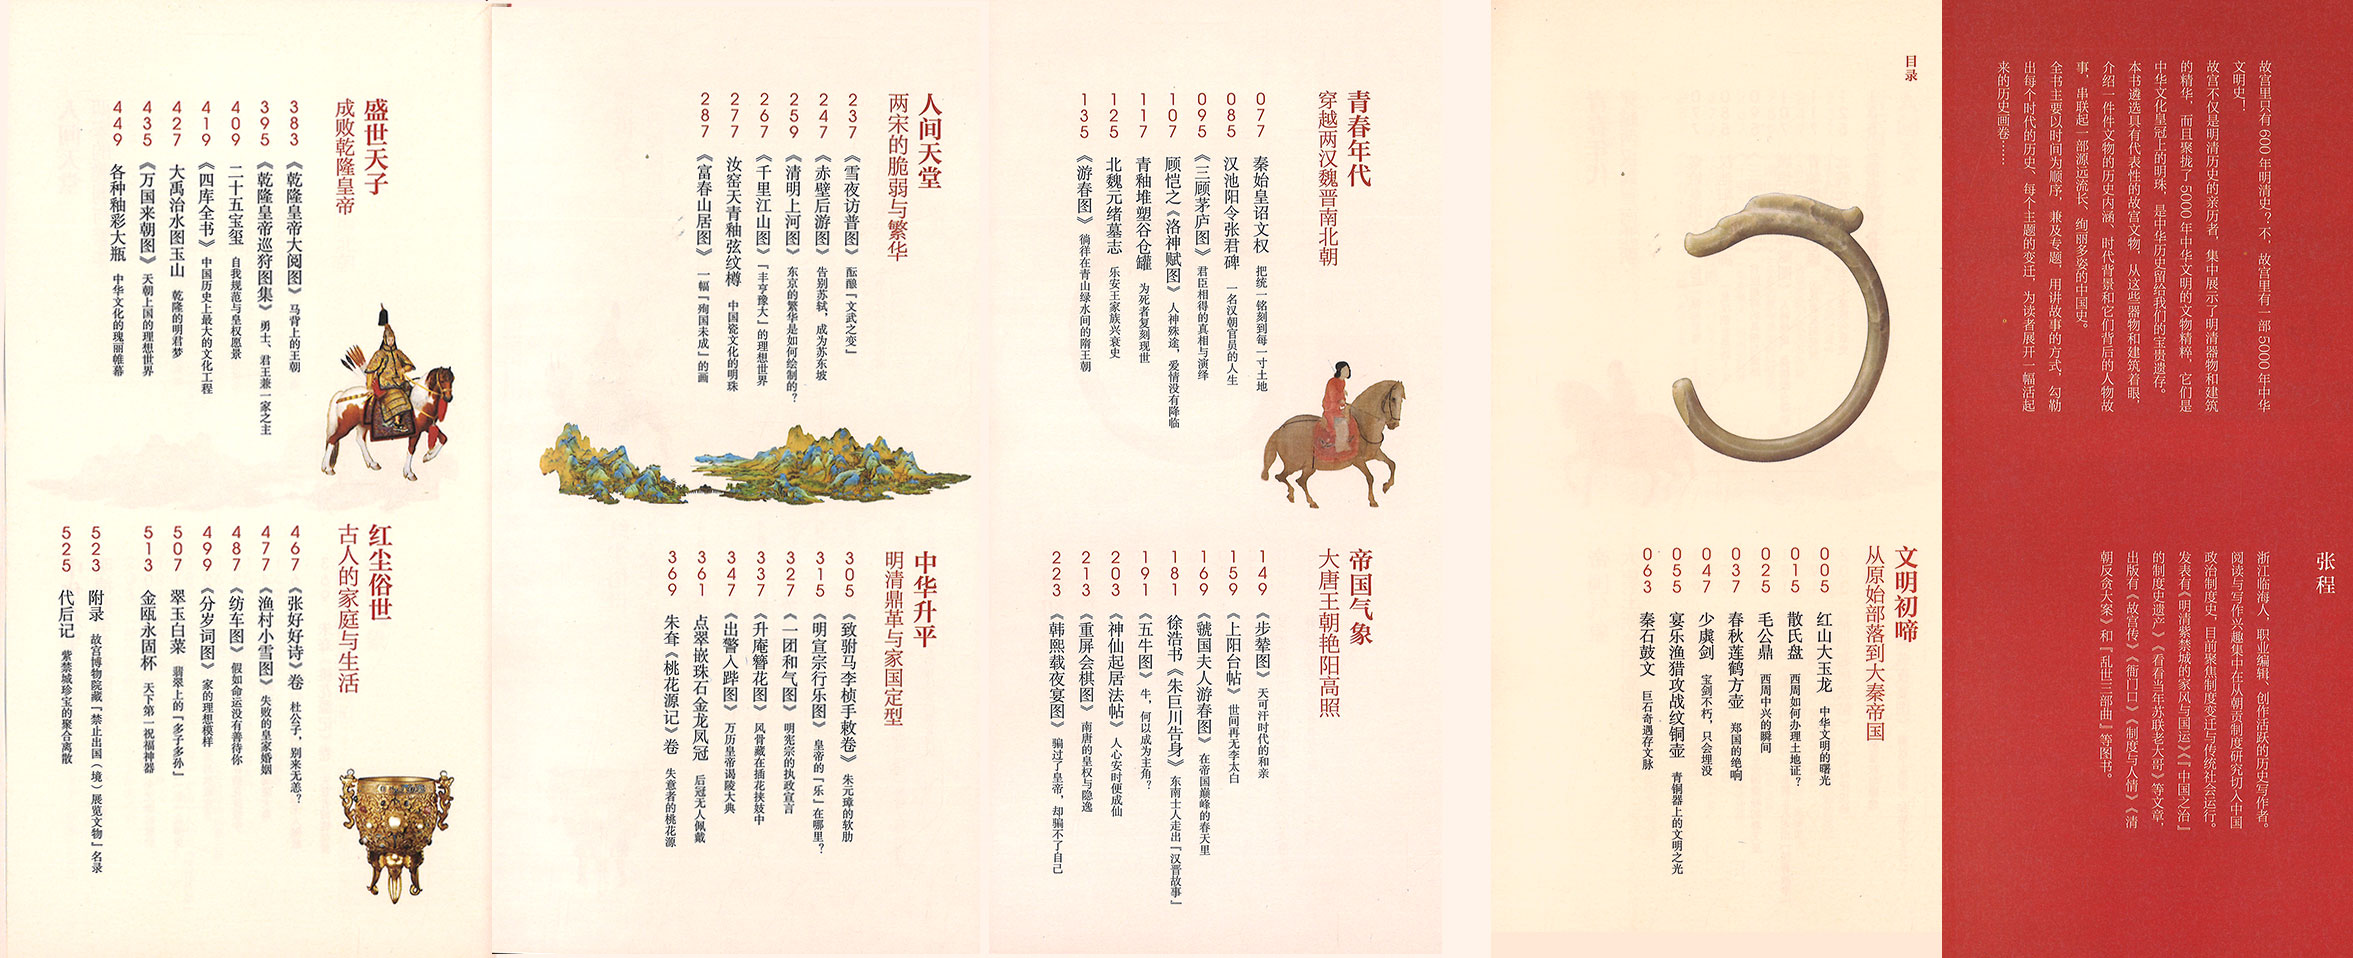 故宫里只有 600 年明清史？不，故宫里有一部 5000 年中华
文明史！
故宫不仅是明清历史的亲历者，集中展示了明清器物和建筑
的精华，而且聚拢了 5000 年中华文明的文物精粹，它们是
中华文化皇冠上的明珠，是中华历史留给我们的宝贵遗存。
本书遴选具有代表性的故宫文物，从这些器物和建筑着眼，
介绍一件件文物的历史内涵、时代背景和它们背后的人物故
事，串联起一部源远流长、绚丽多姿的中国史。
全书主要以时间为顺序，兼及专题，用讲故事的方式，勾勒
出每个时代的历史、每个主题的变迁，为读者展开一幅活起
来的历史画卷……
张程
浙江临海人，职业编辑、创作活跃的历史写作者。
阅读与写作兴趣集中在从朝贡制度研究切入中国
政治制度史，目前聚焦制度变迁与传统社会运行。
发表有《明清紫禁城的家风与国运》《“中国之治”
的制度史遗产》《看看当年苏联老大哥》等文章，
出版有《故宫传》《衙门口》《制度与人情》《清
朝反贪大案》和『乱世三部曲』等图书。
目录
文明初啼
从原始部落到大秦帝国
005 红山大玉龙 中华文明的曙光
015 散氏盘 西周如何办理土地证？
025 毛公鼎 西周中兴的瞬间
037 春秋莲鹤方壶 郑国的绝响
047 少虡剑 宝剑不朽，只会埋没
055 宴乐渔猎攻战纹铜壶 青铜器上的文明之光
063 秦石鼓文 巨石奇遇存文脉
青春年代
穿越两汉魏晋南北朝
077 秦始皇诏文权 把统一铭刻到每一寸土地
085 汉池阳令张君碑 一名汉朝官员的人生
095 《三顾茅庐图》 君臣相得的真相与演绎
107 顾恺之《洛神赋图》 人神殊途，爱情没有降临
117 青釉堆塑谷仓罐 为死者复刻现世
125 北魏元绪墓志 乐安王家族兴衰史
135 《游春图》 徜徉在青山绿水间的隋王朝
帝国气象
大唐王朝艳阳高照
149 《步辇图》 天可汗时代的和亲
159 《上阳台帖》 世间再无李太白
169 《虢国夫人游春图》 在帝国巅峰的春天里
181 徐浩书《朱巨川告身》 东南士人走出『汉晋故事』
191 《五牛图》 牛，何以成为主角？
203 《神仙起居法帖》 人心安时便成仙
213 《重屏会棋图》 南唐的皇权与隐逸
223 《韩熙载夜宴图》 骗过了皇帝，却骗不了自己
人间天堂
两宋的脆弱与繁华
237 《雪夜访普图》 酝酿『文武之变』
247 《赤壁后游图》 告别苏轼，成为苏东坡
259 《清明上河图》 东京的繁华是如何绘制的？
267 《千里江山图》 『丰亨豫大』的理想世界
277 汝窑天青釉弦纹樽 中国瓷文化的明珠
287 《富春山居图》 一幅『殉国未成』的画
中华升平
明清鼎革与家国定型
305 《致驸马李桢手敕卷》 朱元璋的软肋
315 《明宣宗行乐图》 皇帝的『乐』在哪里？
327 《一团和气图》 明宪宗的执政宣言
337 《升庵簪花图》 风骨藏在插花挟妓中
347 《出警入跸图》 万历皇帝谒陵大典
361 点翠嵌珠石金龙凤冠 后冠无人佩戴
369 朱耷《桃花源记》卷 失意者的桃花源
盛世天子
成败乾隆皇帝
383 《乾隆皇帝大阅图》 马背上的王朝
395 《乾隆皇帝巡狩图集》 勇士、君王兼一家之主
409 二十五宝玺 自我规范与皇权愿景
419 《四库全书》 中国历史上最大的文化工程
427 大禹治水图玉山 乾隆的明君梦
435 《万国来朝图》 天朝上国的理想世界
449 各种釉彩大瓶 中华文化的瑰丽帷幕
红尘俗世
古人的家庭与生活
467 《张好好诗》卷 杜公子，别来无恙？
477 《渔村小雪图》 失败的皇家婚姻
487 《纺车图》 假如命运没有善待你
499 《分岁词图》 家的理想模样
507 翠玉白菜 翡翠上的『多子多孙』
513 金瓯永固杯 天下第一祝福神器
523 附录 故宫博物院藏『禁止出国（境）展览文物』名录
525 代后记 紫禁城珍宝的聚合离散